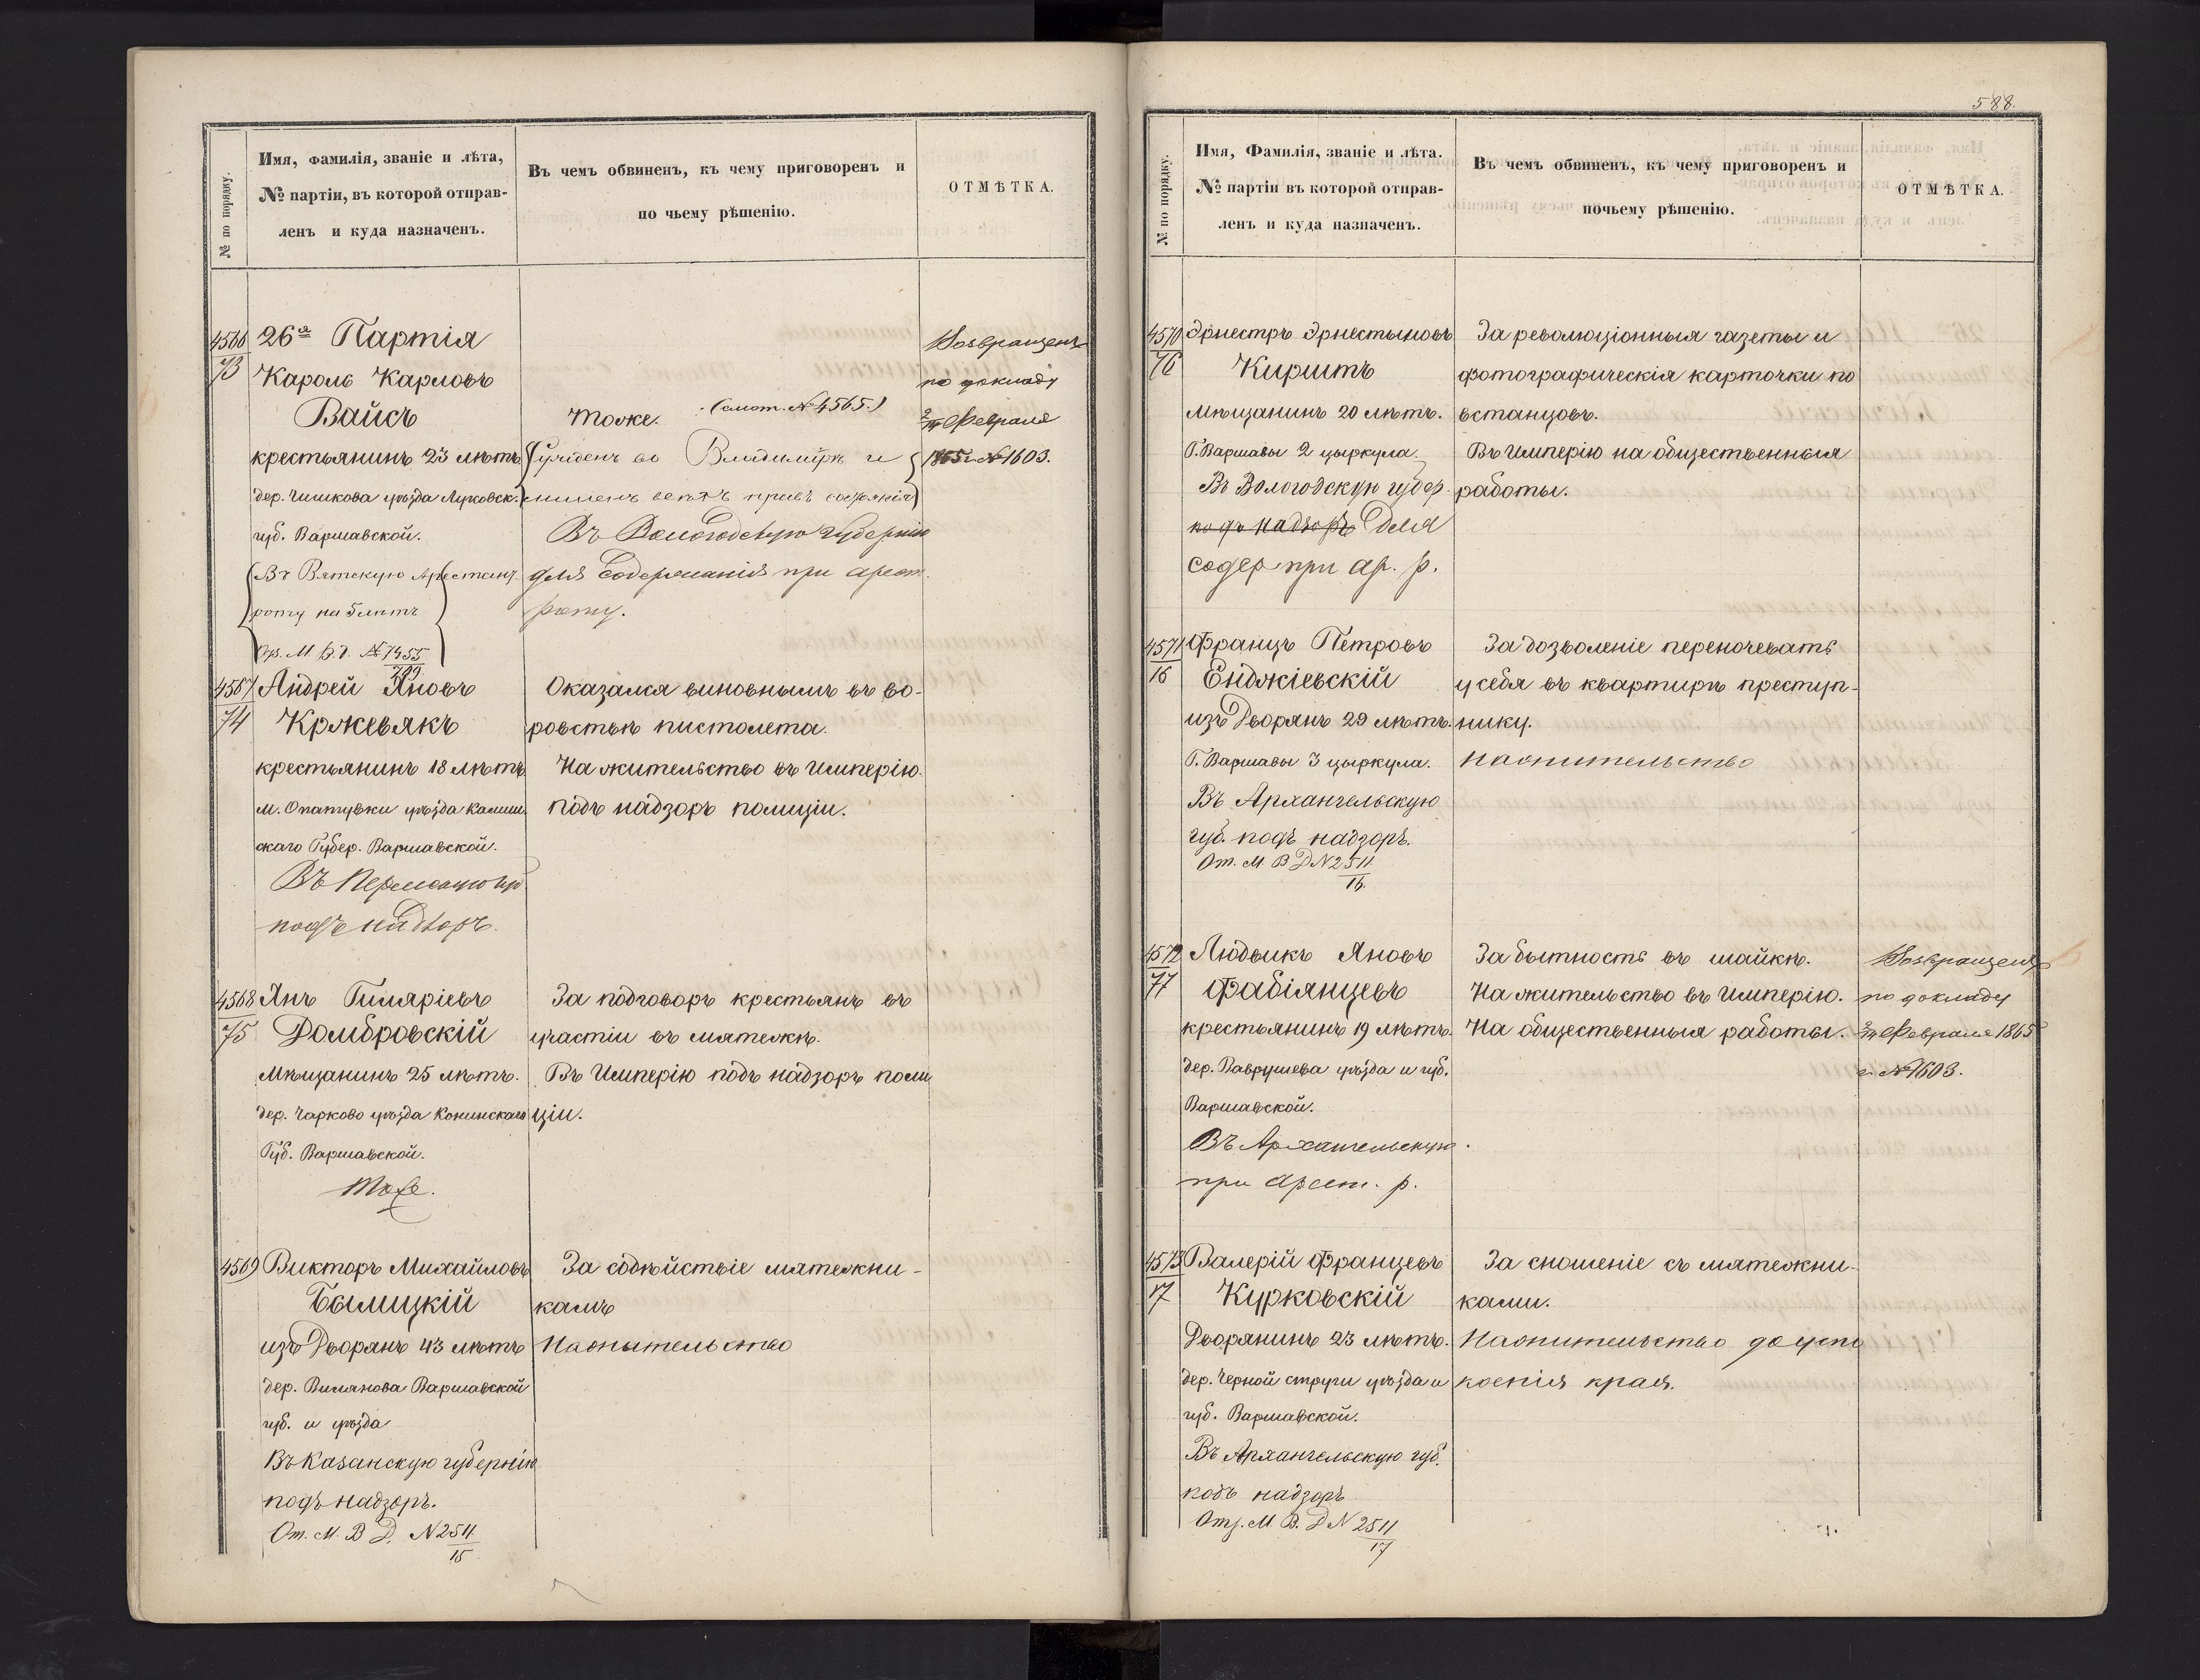 588.
№ по порядку.
Имя, фамилія, званіе и лѣта,
№ партіи, въ которой отправ-
ленъ и куда назначенъ.
Въ чемъ обвиненъ, къ чему приговоренъ и
по чьему рѣшенію.
ОТМѢТКА.
4566
73
26я Партія
Кароль Карловъ
Вайсъ
крестьянинъ 23 лѣтъ
дер. Чишкова уѣзда Луковск.
губ. Варшавской.
Въ Вятскую Арестант.
роту на 5 лѣтъ
М. В. Д. № 1455
Тоже. (смот. № 4565.)
во Владимірѣ и
лишенъ всѣхъ правъ состоянія)
Въ Вологодскую губернію
для содержанія при арест.
роту.
Возвращенъ
по докладу
2/14 Февраля
1865 г. № 1603.
4567
74
Андрей Яновъ
Кржевякъ
крестьянинъ 18 лѣтъ
м. Опатувки уѣзда Калиш-
скаго Губер. Варшавской.
Въ Пермскую губ
подъ надзоръ.
Оказался виновнымъ въ во-
ровствѣ пистолета.
На жительство въ Имперію
подъ надзоръ полиціи.
4568
75
Янъ Гиляріевъ
Домбровскій
Мѣщанинъ 25 лѣтъ.
дер. Чарково уѣзда Конинскаго
Губ. Варшавской.
Тоже.
За подговоръ крестьянъ въ
участіи въ мятежѣ.
Въ Имперію подъ надзоръ поли
ціи.
4569
Викторъ Михайловъ
Былицкій
изъ Дворянъ 43 лѣтъ
дер. Вилянова Варшавской
губ. и уѣзда
Въ Казанскую губернію
подъ надзоръ.
От. М. В. Д. № 2511
15
За содѣйствіе мятежни-
камъ
На жительство
№ по порядку.
Имя, Фамилія, званіе и лѣта.
№ партіи въ которой отправ-
ленъ и куда назначенъ.
Въ чемъ обвиненъ, къ чему приговоренъ и
почьему рѣшенію.
ОТМѢТКА.
4570
76
Эрнестръ Эрнестыновъ
Кирштъ
Мѣщанинъ 20 лѣтъ.
Г. Варшавы 2 цыркула.
Въ Вологодскую губер.
подъ надзоръ для
содер. при ар. р.
За революціонныя газеты и
фотографическія карточки по
встанцовъ.
Въ Имперію на общественныя
работы.
4571
16
Францъ Петровъ
Енджіевскій
изъ Дворянъ 29 лѣтъ.
Г. Варшавы 3 цыркула.
Въ Архангельскую
губ. подъ надзоръ.
От. М. В. Д № 2511
16.
За дозволеніе переночевать
у себя въ квартирѣ преступ-
нику.
На жительство
4572
77
Людвикъ Яновъ
Фабіянцевъ
крестьянинъ 19 лѣтъ.
дер. Паврушева уѣзда и губ.
Варшавской.
Въ Архангельскую
при Арест. р.
За бытность въ шайкѣ.
На жительство въ Имперію.
На общественныя работы.
Возвращенъ
по докладу
2/14 Февраля 1865
г. № 1603.
4573
17
Валерій Францевъ
Курковскій
Дворянинъ 23 лѣтъ.
дер. Черной струги уѣзда и
губ. Варшавской.
Въ Архангельскую губ.
подъ надзоръ
Отз. М. В. Д № 2511
17
За сношеніе съ мятежни-
ками.
На жительство до успо
коенія края.